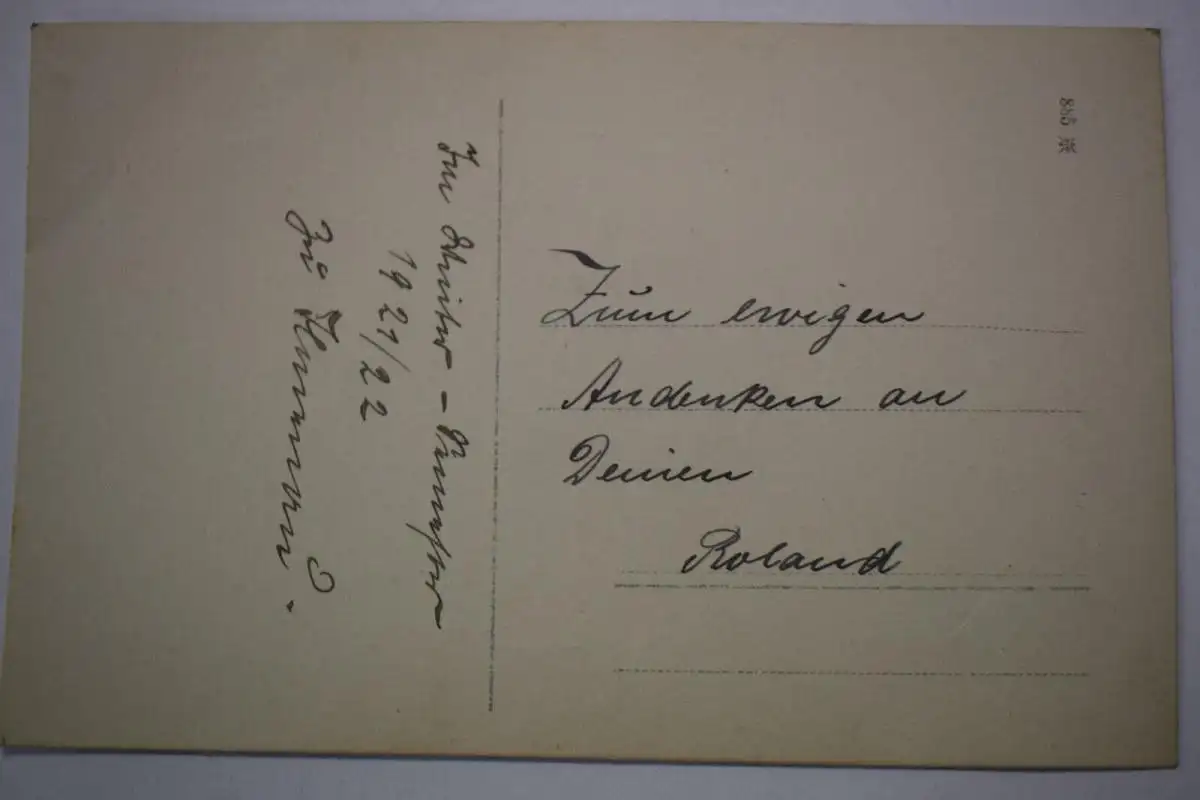 Zum ewigen
Andenken an
Deinen
Roland
Im Winter-Semester
1921/22
zu Ilmenau.
885